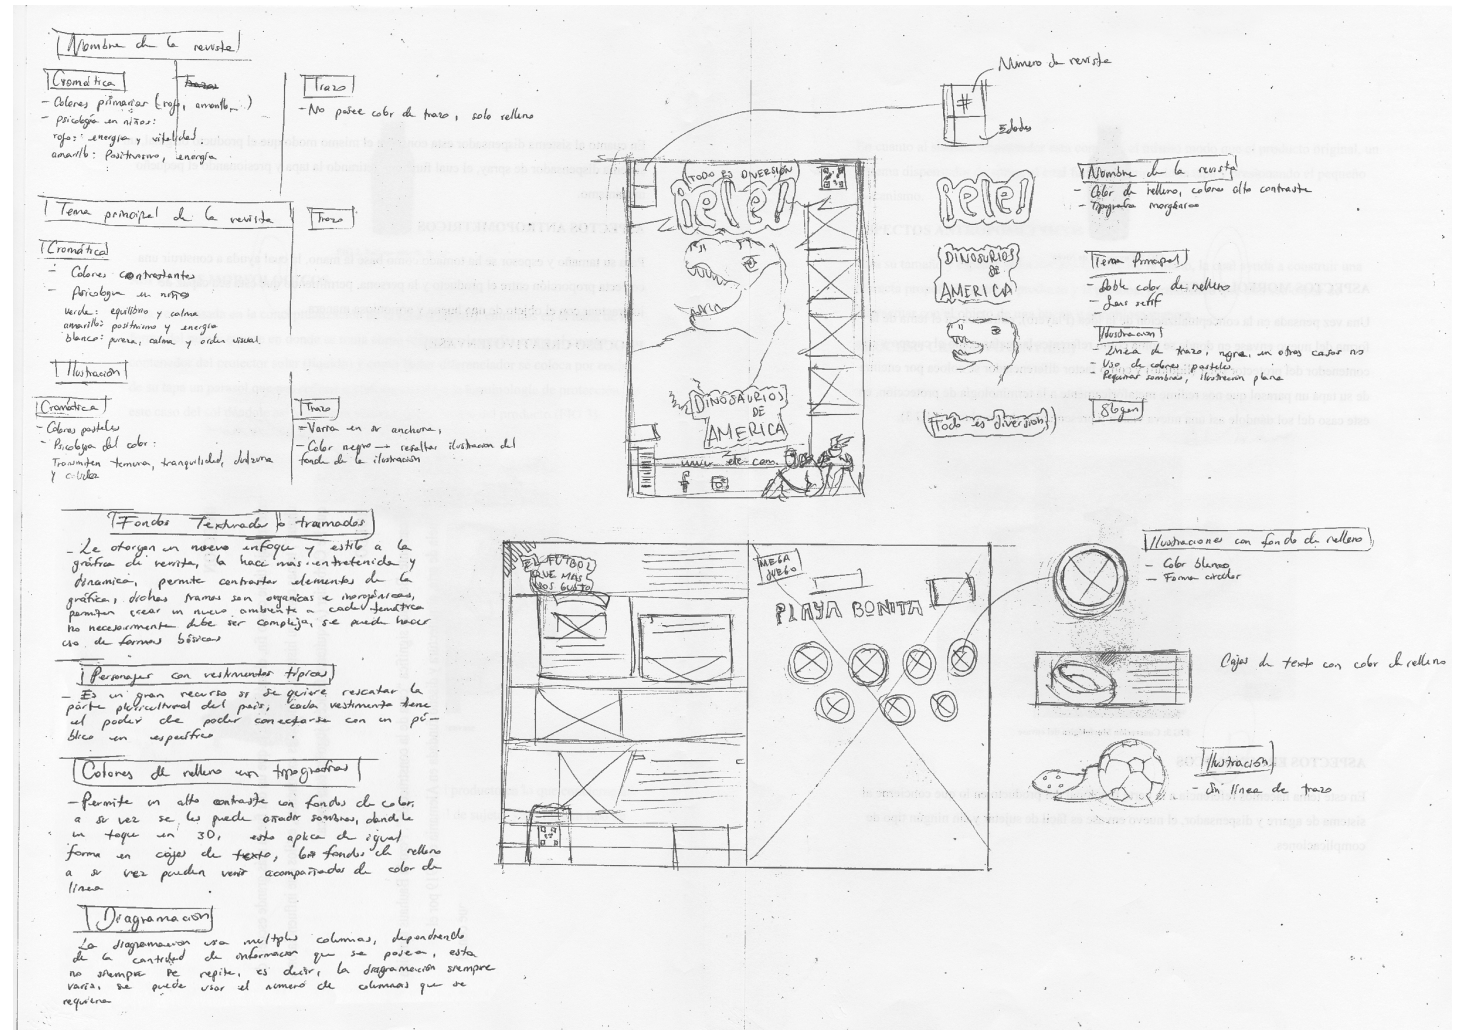 Nombre de la revista
Cromática
Trazo
- Colores primarias (rojo, amarillo, ..)
- psicología en niños:
rojo: energía y vitalidad
amarillo: Positivismo, energía
Trazo
- No posee color de trazo, solo relleno
Tema principal de la revista
Trazo
Cromática
- Colores contrastantes
- Psicologia en niños
verde: equilibrio y calma
amarillo: positivismo y energia
blanco: pureza, calma y orden visual.
Ilustración
Cromática
- Colores pasteles
- Psicologia del color:
Transmiten ternura, tranquilidad, dulzura
y
Trazo
- Varia en su anchura,
- Color negro → resaltar ilustracion del
fondo de la ilustración
Fondos Texturado o tramados
- Le otorgan un nuevo enfoque y estilo a la
gráfica de revista, la hace más entretenida y
dinamica, permite contrastar elementos de la
gráfica, dichas tramas son organicas e inorgánicas,
permiten crear un nuevo ambiente a cada temática
no necesariamente debe ser compleja, se puede hacer
uso de formas básicas
Personajes con vestimentas típicas
- Es un gran recurso si se quiere rescatar la
parte pluricultural del país, cada vestimenta tiene
el poder de poder conectarse con un pú-
blico en especifico
Colores de relleno en tipografias
- Permite un alto contraste con fondos de color.
a su vez se les puede añadir sombras, dandole
un toque en 3D, esto aplica de igual
forma en cajas de texto, los fondos de relleno
a su vez pueden venir acompañados de color de
linea
Diagramación
La diagramacion usa multples columnas, dependiendo
de la cantidad de informacion que se posea, esta
no siempre se repite, es decir, la diagramación siempre
varia, se puede usar el numero de columnas que se
requiera
Número de revista
#
Edades
TODO ES DIVERSIÓN
¡ele!
DINOSAURIOS
DE
AMERICA
www.ele.com
f
¡ele!
DINOSURIOS
DE
AMERICA
Todo es diversion
Nombre de la revista
- Color de relleno, colores alto contraste
- Tipografía inorgánica
Tema Principal
- Doble color de relleno
- Sans serif
Ilustracion
- Linea de trazo, negra, en otros casos no
- Uso de colores pasteles
- Pequeñas sombras, ilustracion plana
Slogan
EL FUTBOL
QUE MAS
NOS GUSTO
MEGA
JUEGO
PLAYA BONITA
Ilustraciones con fondo de relleno
- Color blanco
- Forma circular
Cajas de texto con color de relleno
Ilustración
- Sin línea de trazo